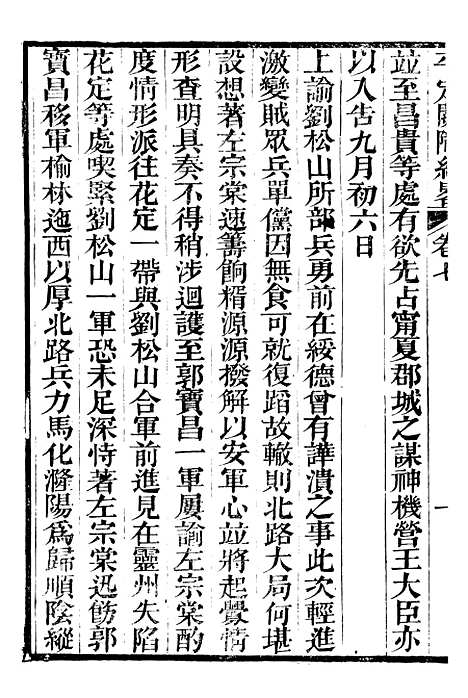 平定關隴紀略 卷七
一
並至昌貴等處有欲先占甯夏郡城之謀神機營王大臣亦
以入告九月初六日
上諭劉松山所部兵勇前在綏德曾有譁潰之事此次輕進
激變賊眾兵單儻因無食可就復蹈故轍則北路大局何堪
設想著左宗棠速籌餉糈源源撥解以安軍心並將起釁情
形查明具奏不得稍涉迴護至郭寶昌一軍屢諭左宗棠酌
度情形派往花定一帶與劉松山合軍前進見在靈州失陷
花定等處喫緊劉松山一軍恐未足深恃著左宗棠迅飭郭
寶昌移軍榆林迤西以厚北路兵力馬化漋陽為歸順陰縱